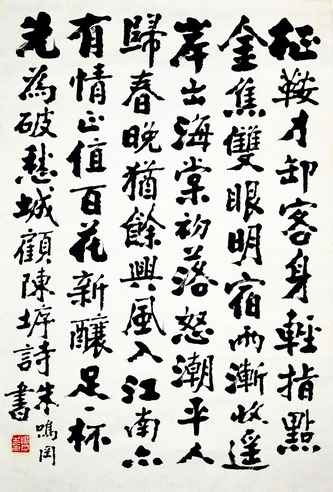 征鞍才卸客身輕指點
金焦雙眼明宿雨漸收遙
岸出海棠初落怒潮平人
歸春晚猶餘興風入江南亦
有情正值百花新釀足一杯
先為破愁城顧陳墀詩朱鳴岡
書